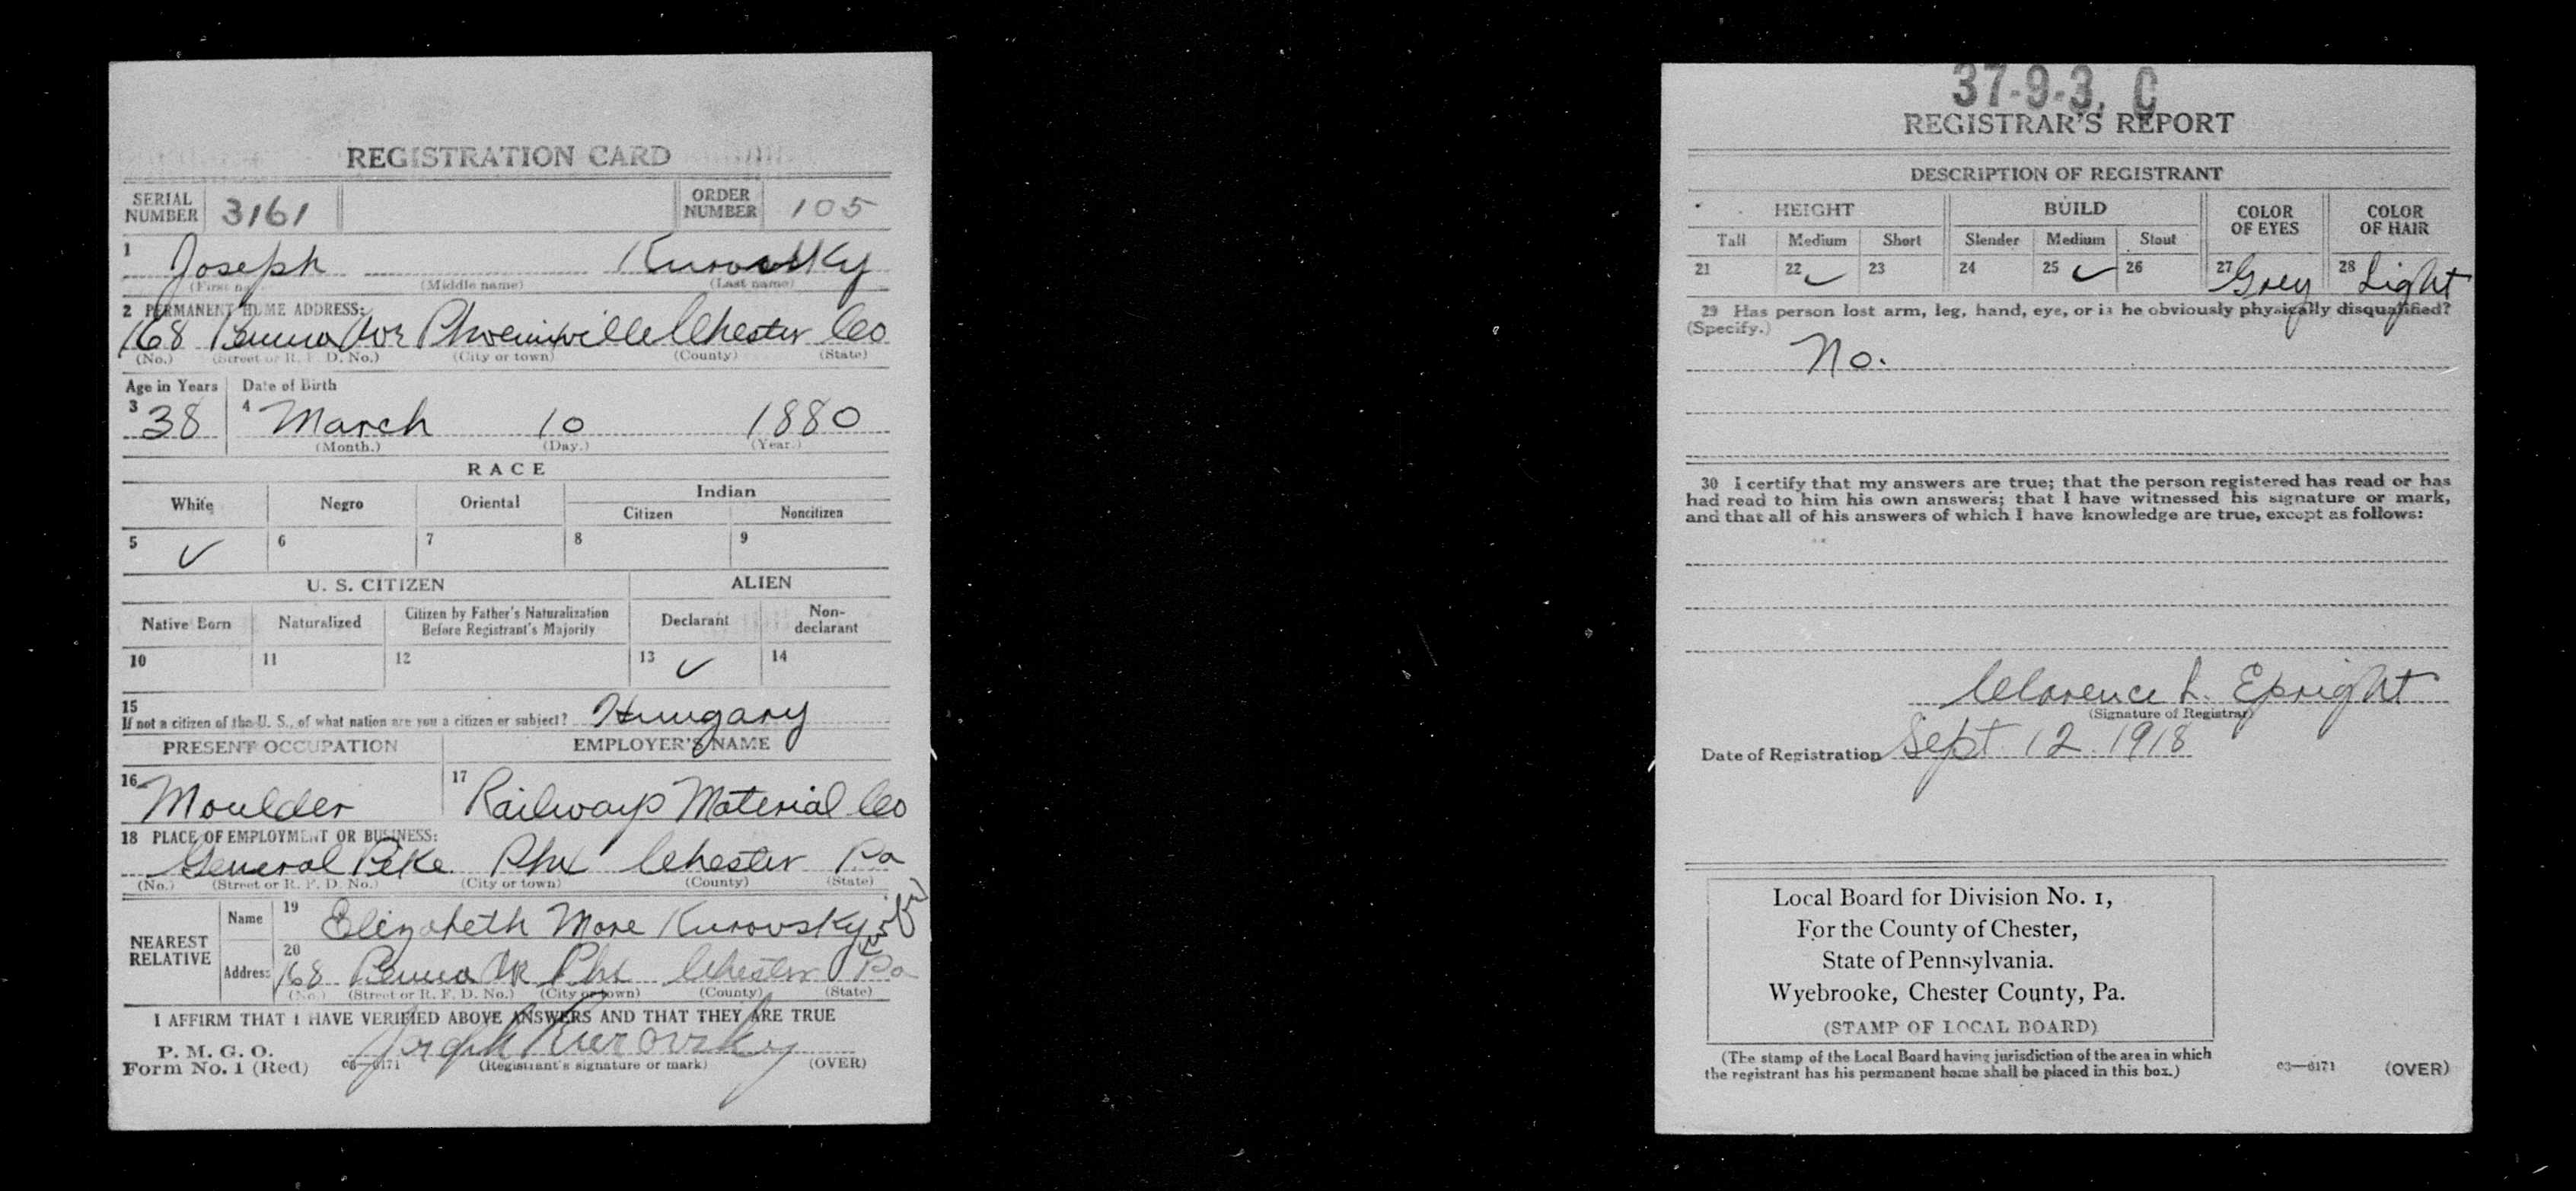 REGISTRATION CARD
SERIAL NUMBER 3161 ORDER NUMBER 105
1 Joseph Kurovsky
(First name) (Middle name) (Last name)
2 PERMANENT HOME ADDRESS:
168 Ave Phoenixville Chester Co
(No.) (Street or R. F. D. No.) (City or town) (County) (State)
Age in Years Date of Birth
3 38 4 March 10 1880
(Month.) (Day.) (Year.)
RACE
White Negro Oriental Indian
Citizen Noncitizen
5 ✓ 6 7 8 9
U. S. CITIZEN ALIEN
Native Born Naturalized Citizen by Father's Naturalization Before Registrant's Majority Declarant Non-declarant
10 11 12 13 ✓ 14
15
If not a citizen of the U. S., of what nation are you a citizen or subject? Hungary
PRESENT OCCUPATION EMPLOYER'S NAME
16 Moulder 17 Railways Material Co
18 PLACE OF EMPLOYMENT OR BUSINESS:
General Pike Phx Chester Pa
(No.) (Street or R. F. D. No.) (City or town) (County) (State)
NEAREST RELATIVE
Name 19 Elizabeth More Kurovsky
Address 20 168 Phx Chester Pa
(No.) (Street or R. F. D. No.) (City or town) (County) (State)
I AFFIRM THAT I HAVE VERIFIED ABOVE ANSWERS AND THAT THEY ARE TRUE
P. M. G. O.
Form No. 1 (Red) 03—6171 Joseph Kurovsky
(Registrant's signature or mark) (OVER)
37-9-3. C
REGISTRAR'S REPORT
DESCRIPTION OF REGISTRANT
HEIGHT BUILD COLOR OF EYES COLOR OF HAIR
Tall Medium Short Slender Medium Stout
21 22 ✓ 23 24 25 ✓ 26 27 Grey 28 Light
29 Has person lost arm, leg, hand, eye, or is he obviously physically disqualified?
(Specify.)
No.
30 I certify that my answers are true; that the person registered has read or has
had read to him his own answers; that I have witnessed his signature or mark,
and that all of his answers of which I have knowledge are true, except as follows:
Clarence L. Epright
(Signature of Registrar)
Date of Registration Sept. 12 1918
Local Board for Division No. 1,
For the County of Chester,
State of Pennsylvania.
Wyebrooke, Chester County, Pa.
(STAMP OF LOCAL BOARD)
(The stamp of the Local Board having jurisdiction of the area in which
the registrant has his permanent home shall be placed in this box.)
03—6171 (OVER)